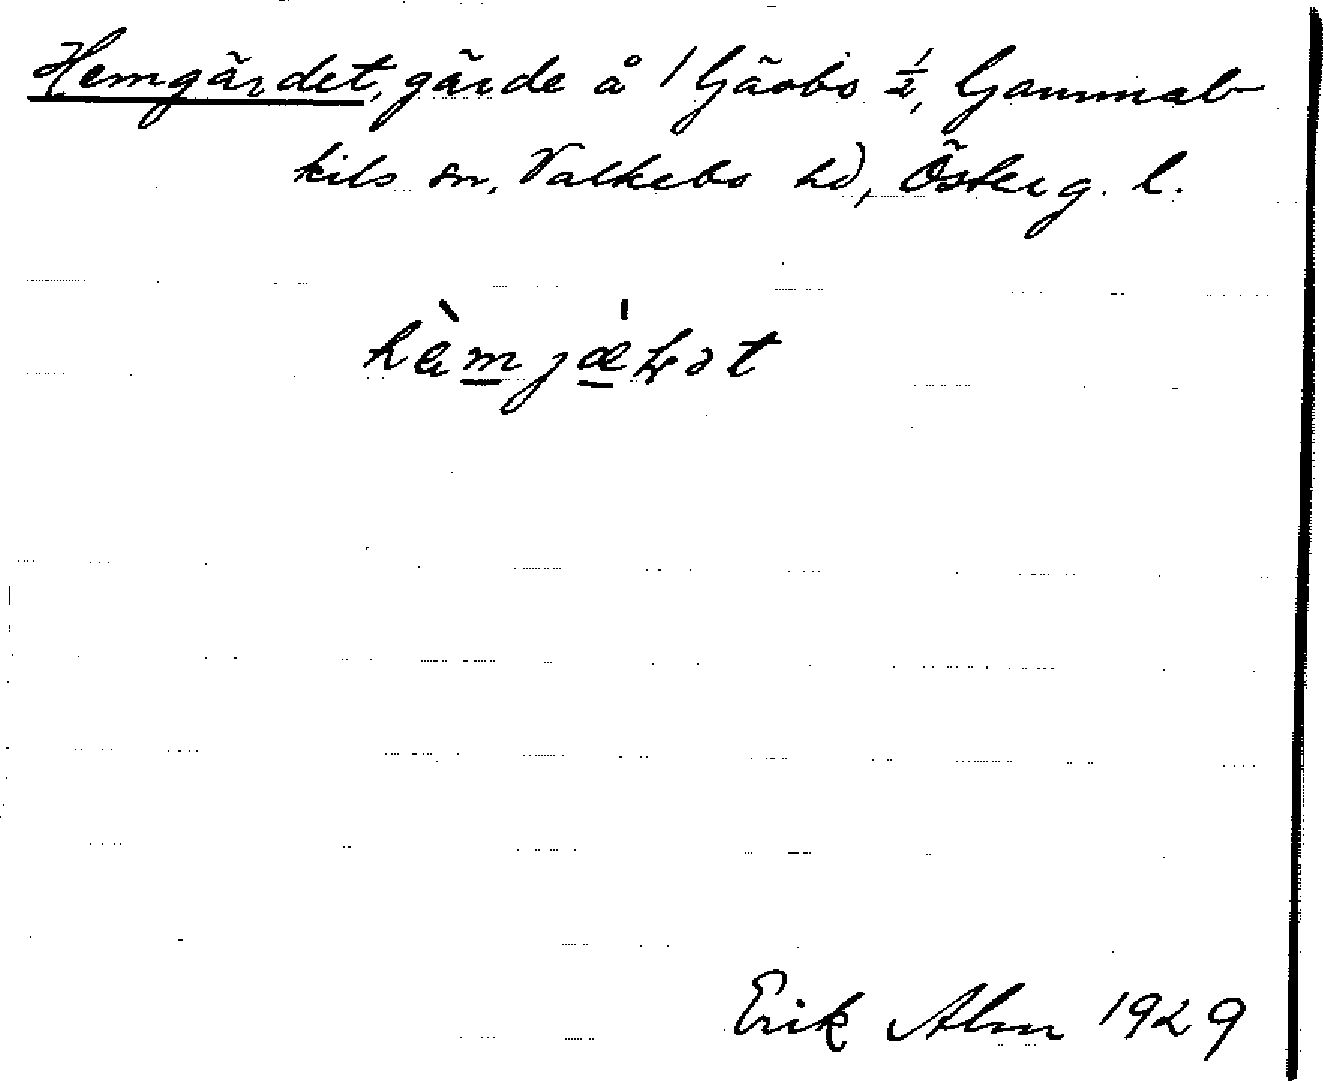 Hemgärdet, gärde å 1 Gäsbo ½, Gammal-
kils sn, Valkebo hd, Österg. l.
Erik Alm 1929